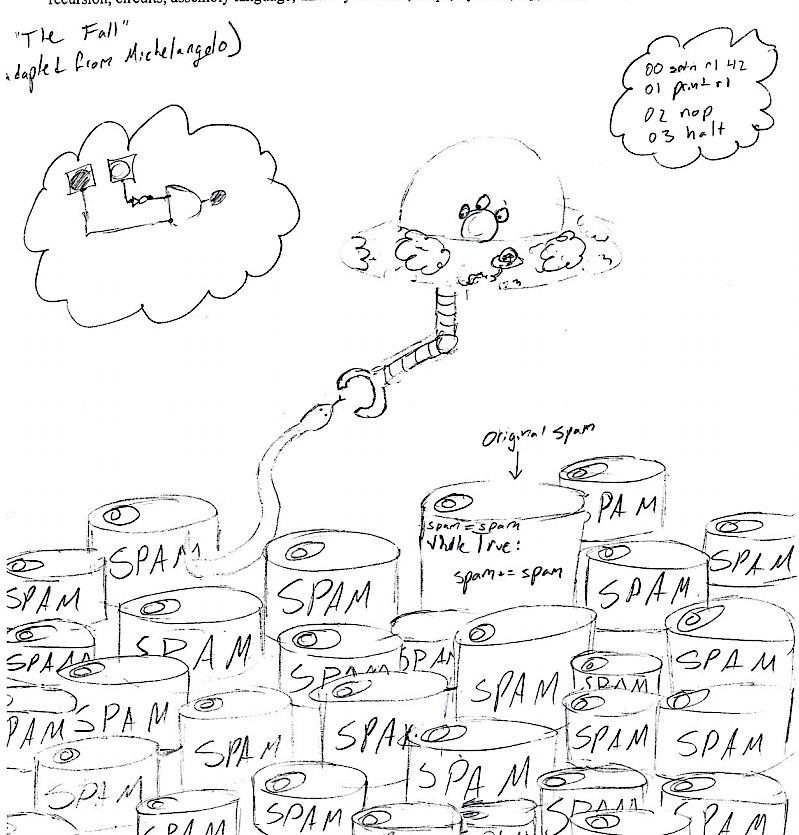 recursion, circuits, assembly language,
"The Fall"
adapted from Michelangelo)
00 setn r1 42
01 print r1
02 nop
03 halt
Original Spam
spam = spam
while True:
spam += spam
SPAM
SPAM
SPAM
SPAM
SPAM
SPAM
SPAM
SPAM
SPAM
SPAM
SPAM
SPAM
SPAM
SPAM
SPAM
PAM
SPAM
SPAM
SPAM
SPAM
SPAM
SPAM
SPAM
SPAM
SPAM
SPAM
SPAM